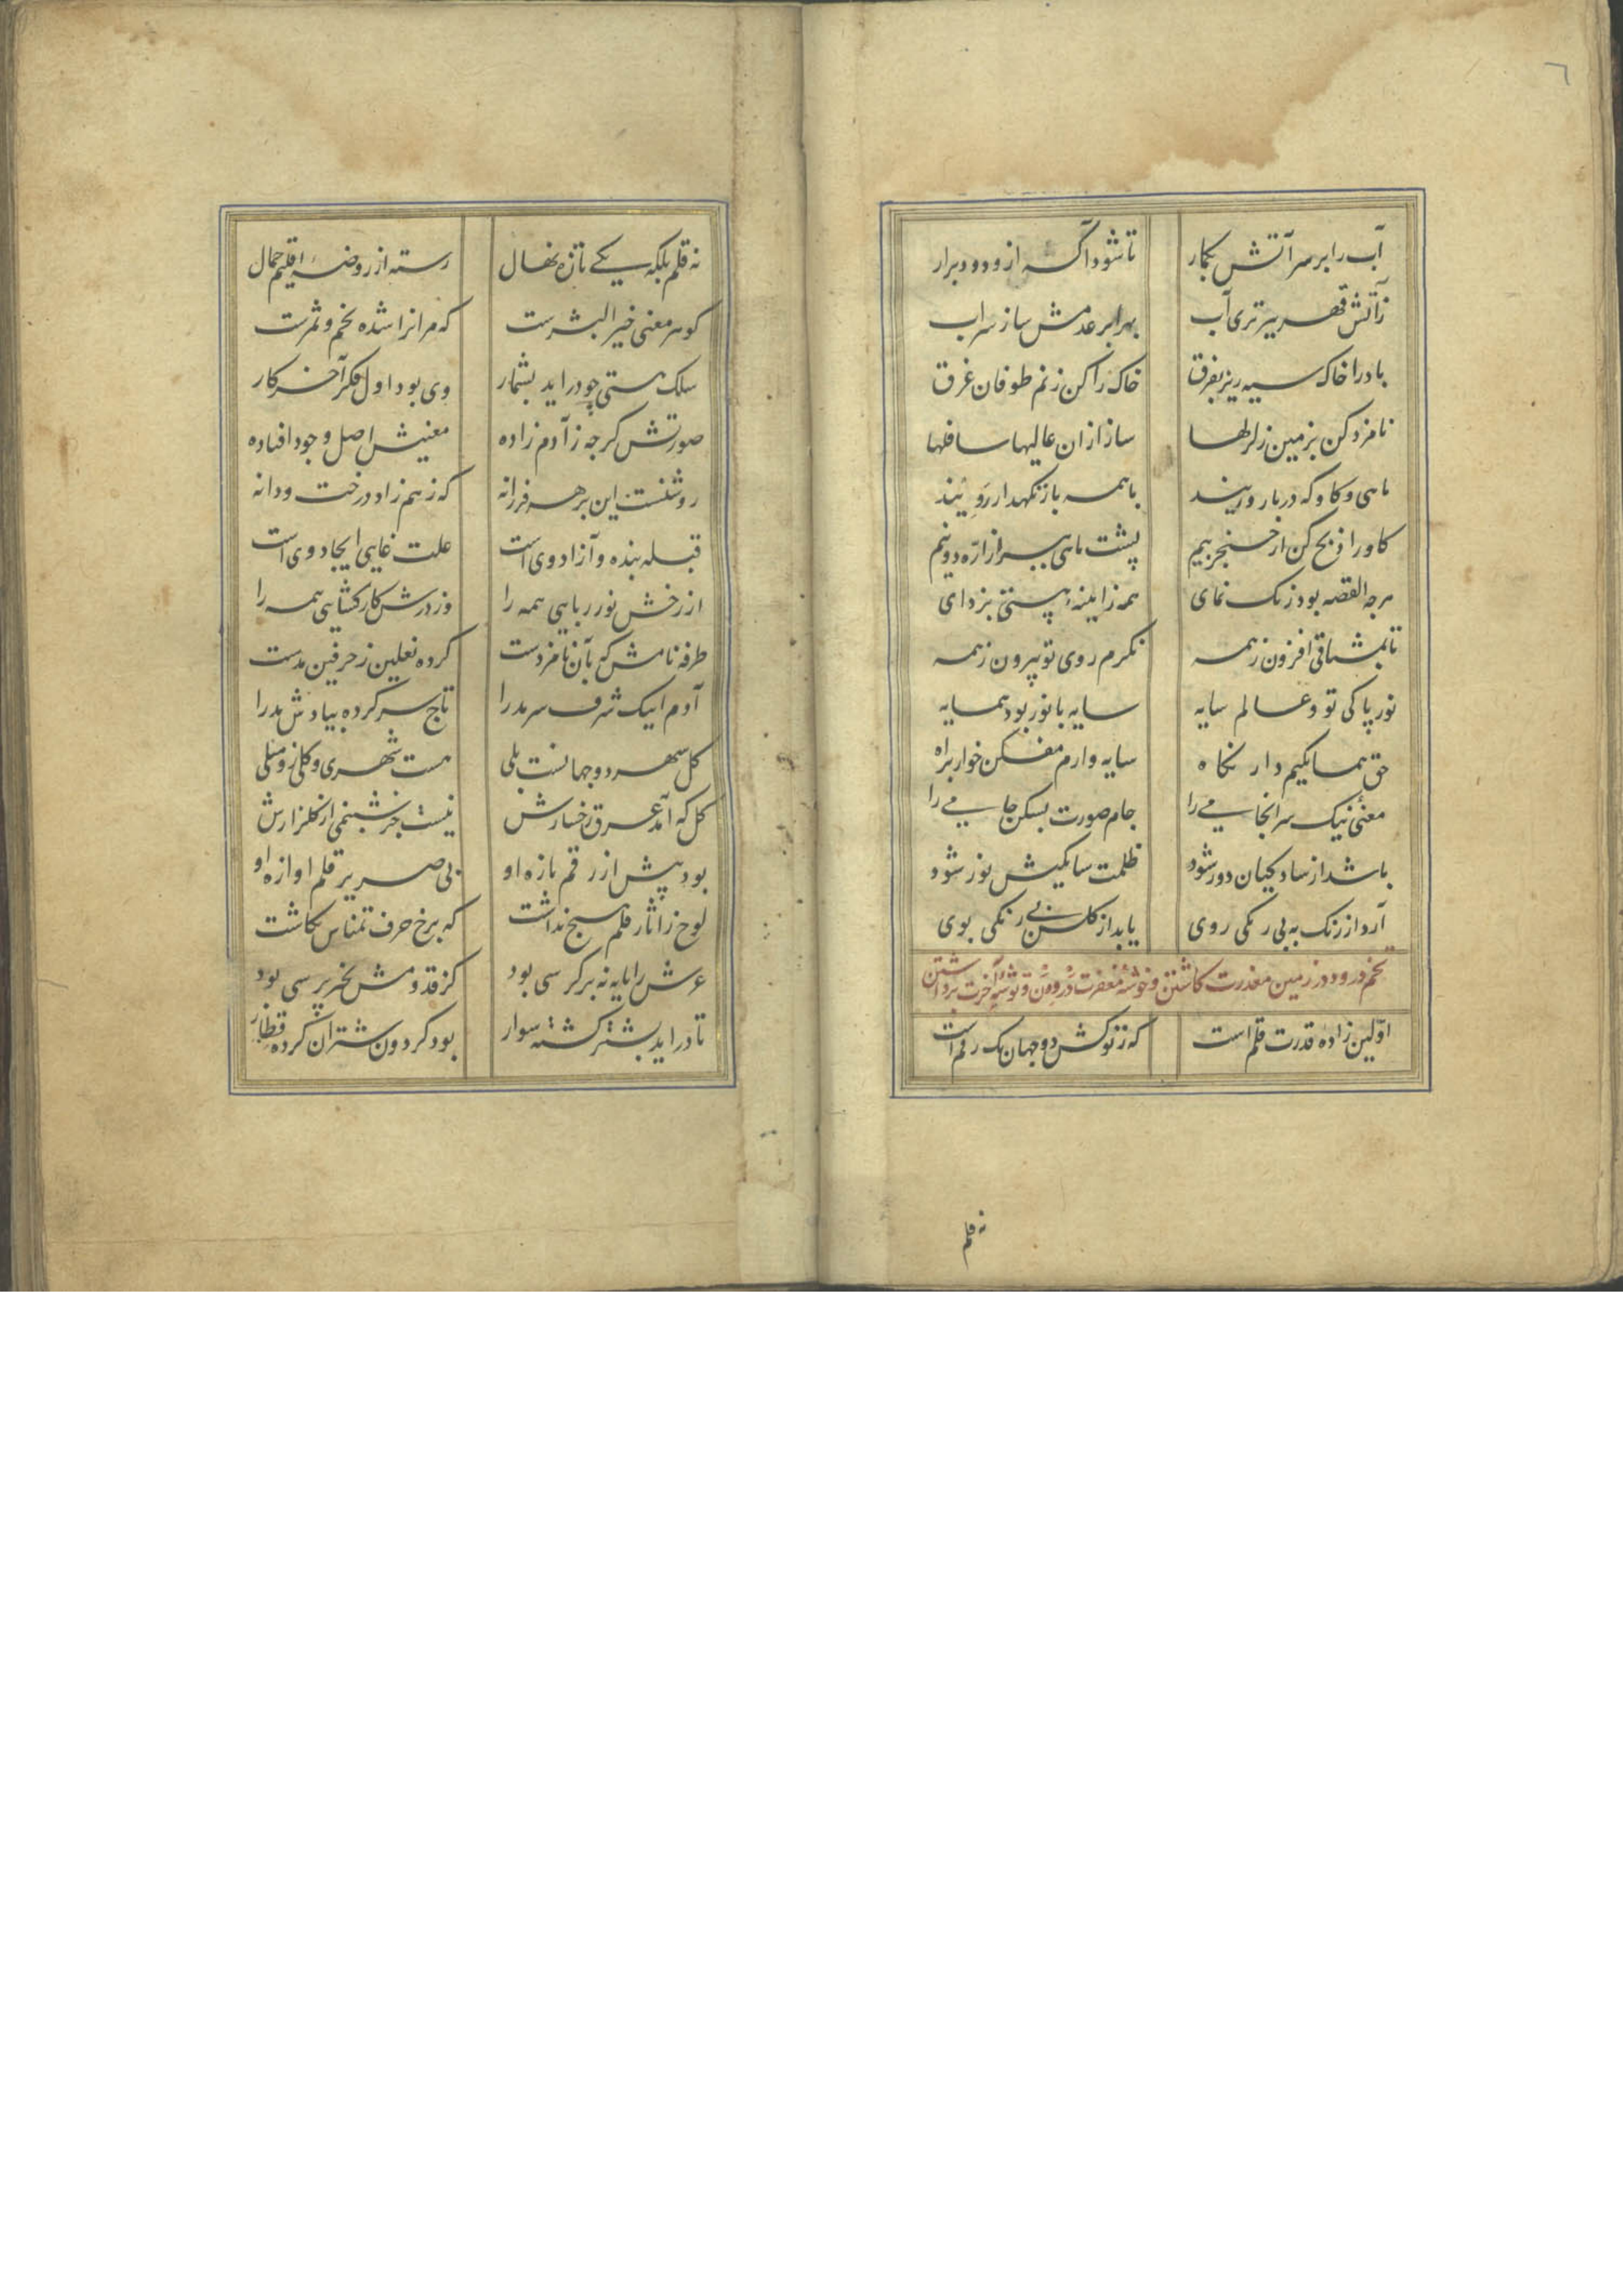 ٦
آب را بر سر آتش بکمار تا شود آکه ازو دود برار
زآتش قهر ببر تری آب بهر ابر عدمش ساز سراب
باد را خاک سیه ریز بفرق خاک را کن زنم طوفان غرق
نامزد کن بزمین زلزلها ساز ازان عالیها سافلها
ماهی و کاو که دربار وریند با همه باز نکهدار رو یند
کاو را ذبح کن از خنجر بیم پشت ماهی ببر از اره دو نیم
هرچه القصه بود زنک نمای همه ز ایینه هستی بزدای
تا بمشتاقی افزون ز همه نکرم روی تو بیرون ز همه
نور پاکی تو و عالم سایه سایه با نور بود همسایه
حق همسایکیم دار نکاه سایه وارم مفکن خوار براه
معنی نیک سرانجامی را جام صورت بشکن جامی را
باشد از سایکیان دور شود ظلمت سایکیش نور شود
آرد از رنک به بی رنکی روی یابد از کلشن بی رنکی بوی
تخم درود در زمین معذرت کاشتن و خوشه مغفرت درودن و توشه آخرت برداشتن
اولین زاده قدرت قلم است که ز نوکش دو جهان یک رقم است
نه قلم
نه قلم بلکه یکی تازه نهال رسته از روضه اقلیم جمال
کوهر معنی خیر البشرست که مرانرا شده تخم و ثمرست
سلک هستی چو دراید بشمار وی بود اول فکر آخر کار
صورتش کرچه ز آدم زاده معنیش اصل وجود افتاده
روشنست این بر هر فرزانه که ز هم زاد درخت و دانه
قبله بنده و آزاد وی است علت غایی ایجاد وی است
از رخش نور ربایی همه را وز درش کار کشایی همه را
طرفه نامش که بآن نامزدست کرده نعلین ز حرفین مدست
آدم اینک شرف سرمد را تاج سر کرده بیا دش مد را
کل سهر دو جهانست بلی هست شهری و کلی زو مثلی
کل که آمد عرق رخسارش نیست جز شبنمی از کلزارش
بود پیش از رقم بازه او بی صریر قلم اوازه او
لوح ز آثار قلم هیچ نداشت که برخ حرف تمناس نکاشت
عرش را پایه نه بر کرسی بود کز قدومش بخبر پرسی بود
تا دراید بشتر کشته سوار بود کردون شتران کرده قطار